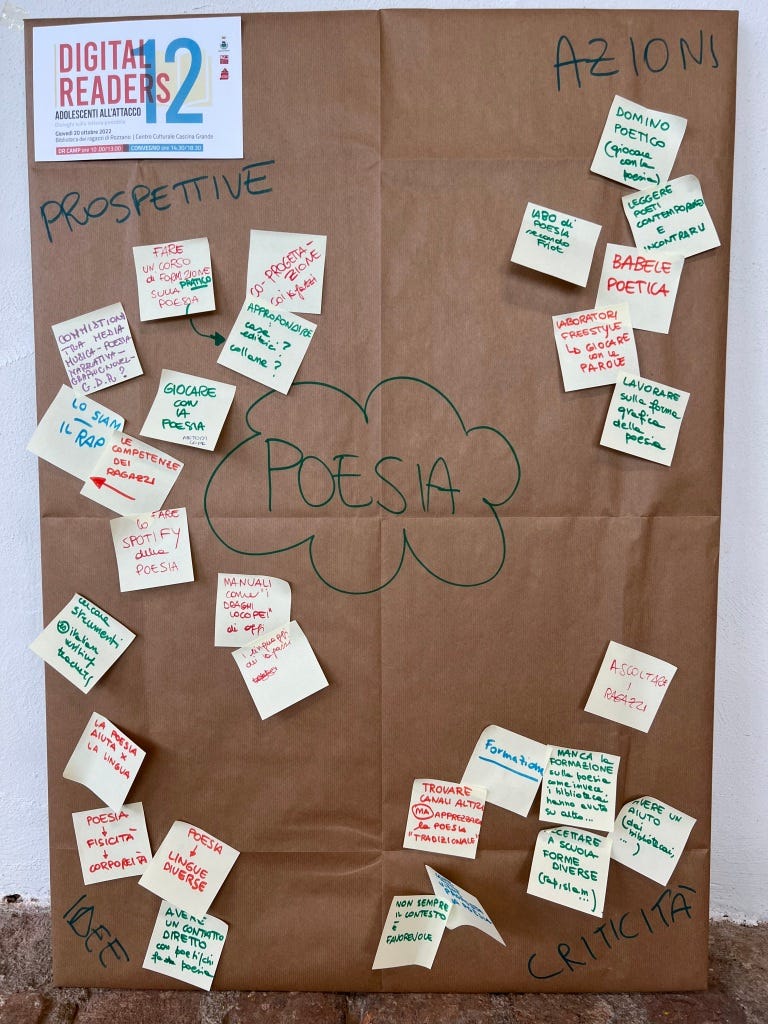 DIGITAL
READERS
12
ADOLESCENTI ALL'ATTACCO
Giovedì 20 ottobre 2022
Biblioteca dei ragazzi di Rozzano | Centro Culturale Cascina Grande
DR CAMP ore 10.00/13.00
CONVEGNO ore 14.30/18.30
AZIONI
DOMINO
POETICO
(giocare
con la
poesia)
LEGGERE
POETI
CONTEMPORANEI
E
INCONTRARLI
LABO di
POESIA
secondo
Friot
BABELE
POETICA
LABORATORI
FREESTYLE
LO GIOCARE
con le
PAROLE
LAVORARE
sulla forma
grafica
della
poesia
PROSPETTIVE
FARE
UN CORSO
di FORMAZIONE
SULLA PRATICO
POESIA
CO-PROGETTA-
ZIONE
COI RAGAZZI
APPROFONDIRE
case
editrici?
collane?
COMMISTIONI
TRA MEDIA
MUSICA-POESIA
NARRATIVA-
GRAPHIC NOVEL-
G.D.R?
GIOCARE
CON
LA
POESIA
LO SLAM
IL RAP
LE
COMPETENZE
DEI
RAGAZZI
FARE
LO
SPOTIFY
della
POESIA
MANUALI
come "i
DRAGHI
LOCOPEI"
di oggi
i linguaggi
cercare
strumenti
italian
writing
teachers
POESIA
LA POESIA
AIUTA X
LA LINGUA
POESIA
FISICITÀ
CORPOREITÀ
POESIA
LINGUE
DIVERSE
AVERE
UN CONTATTO
DIRETTO
con poeti/chi
fa da poesia
IDEE
ASCOLTARE
I
RAGAZZI
Formazione
MANCA la
FORMAZIONE
sulla poesia
come invece
i bibliotecari
hanno avuto
su altro...
TROVARE
CANALI ALTRI
MA APPREZZARE
la POESIA
"TRADIZIONALE"
AVERE UN
AIUTO
(dai
bibliotecari,
...)
ACCETTARE
A SCUOLA
FORME
DIVERSE
(rap, slam
...)
NON SEMPRE
IL CONTESTO
È
FAVOREVOLE
CRITICITÀ